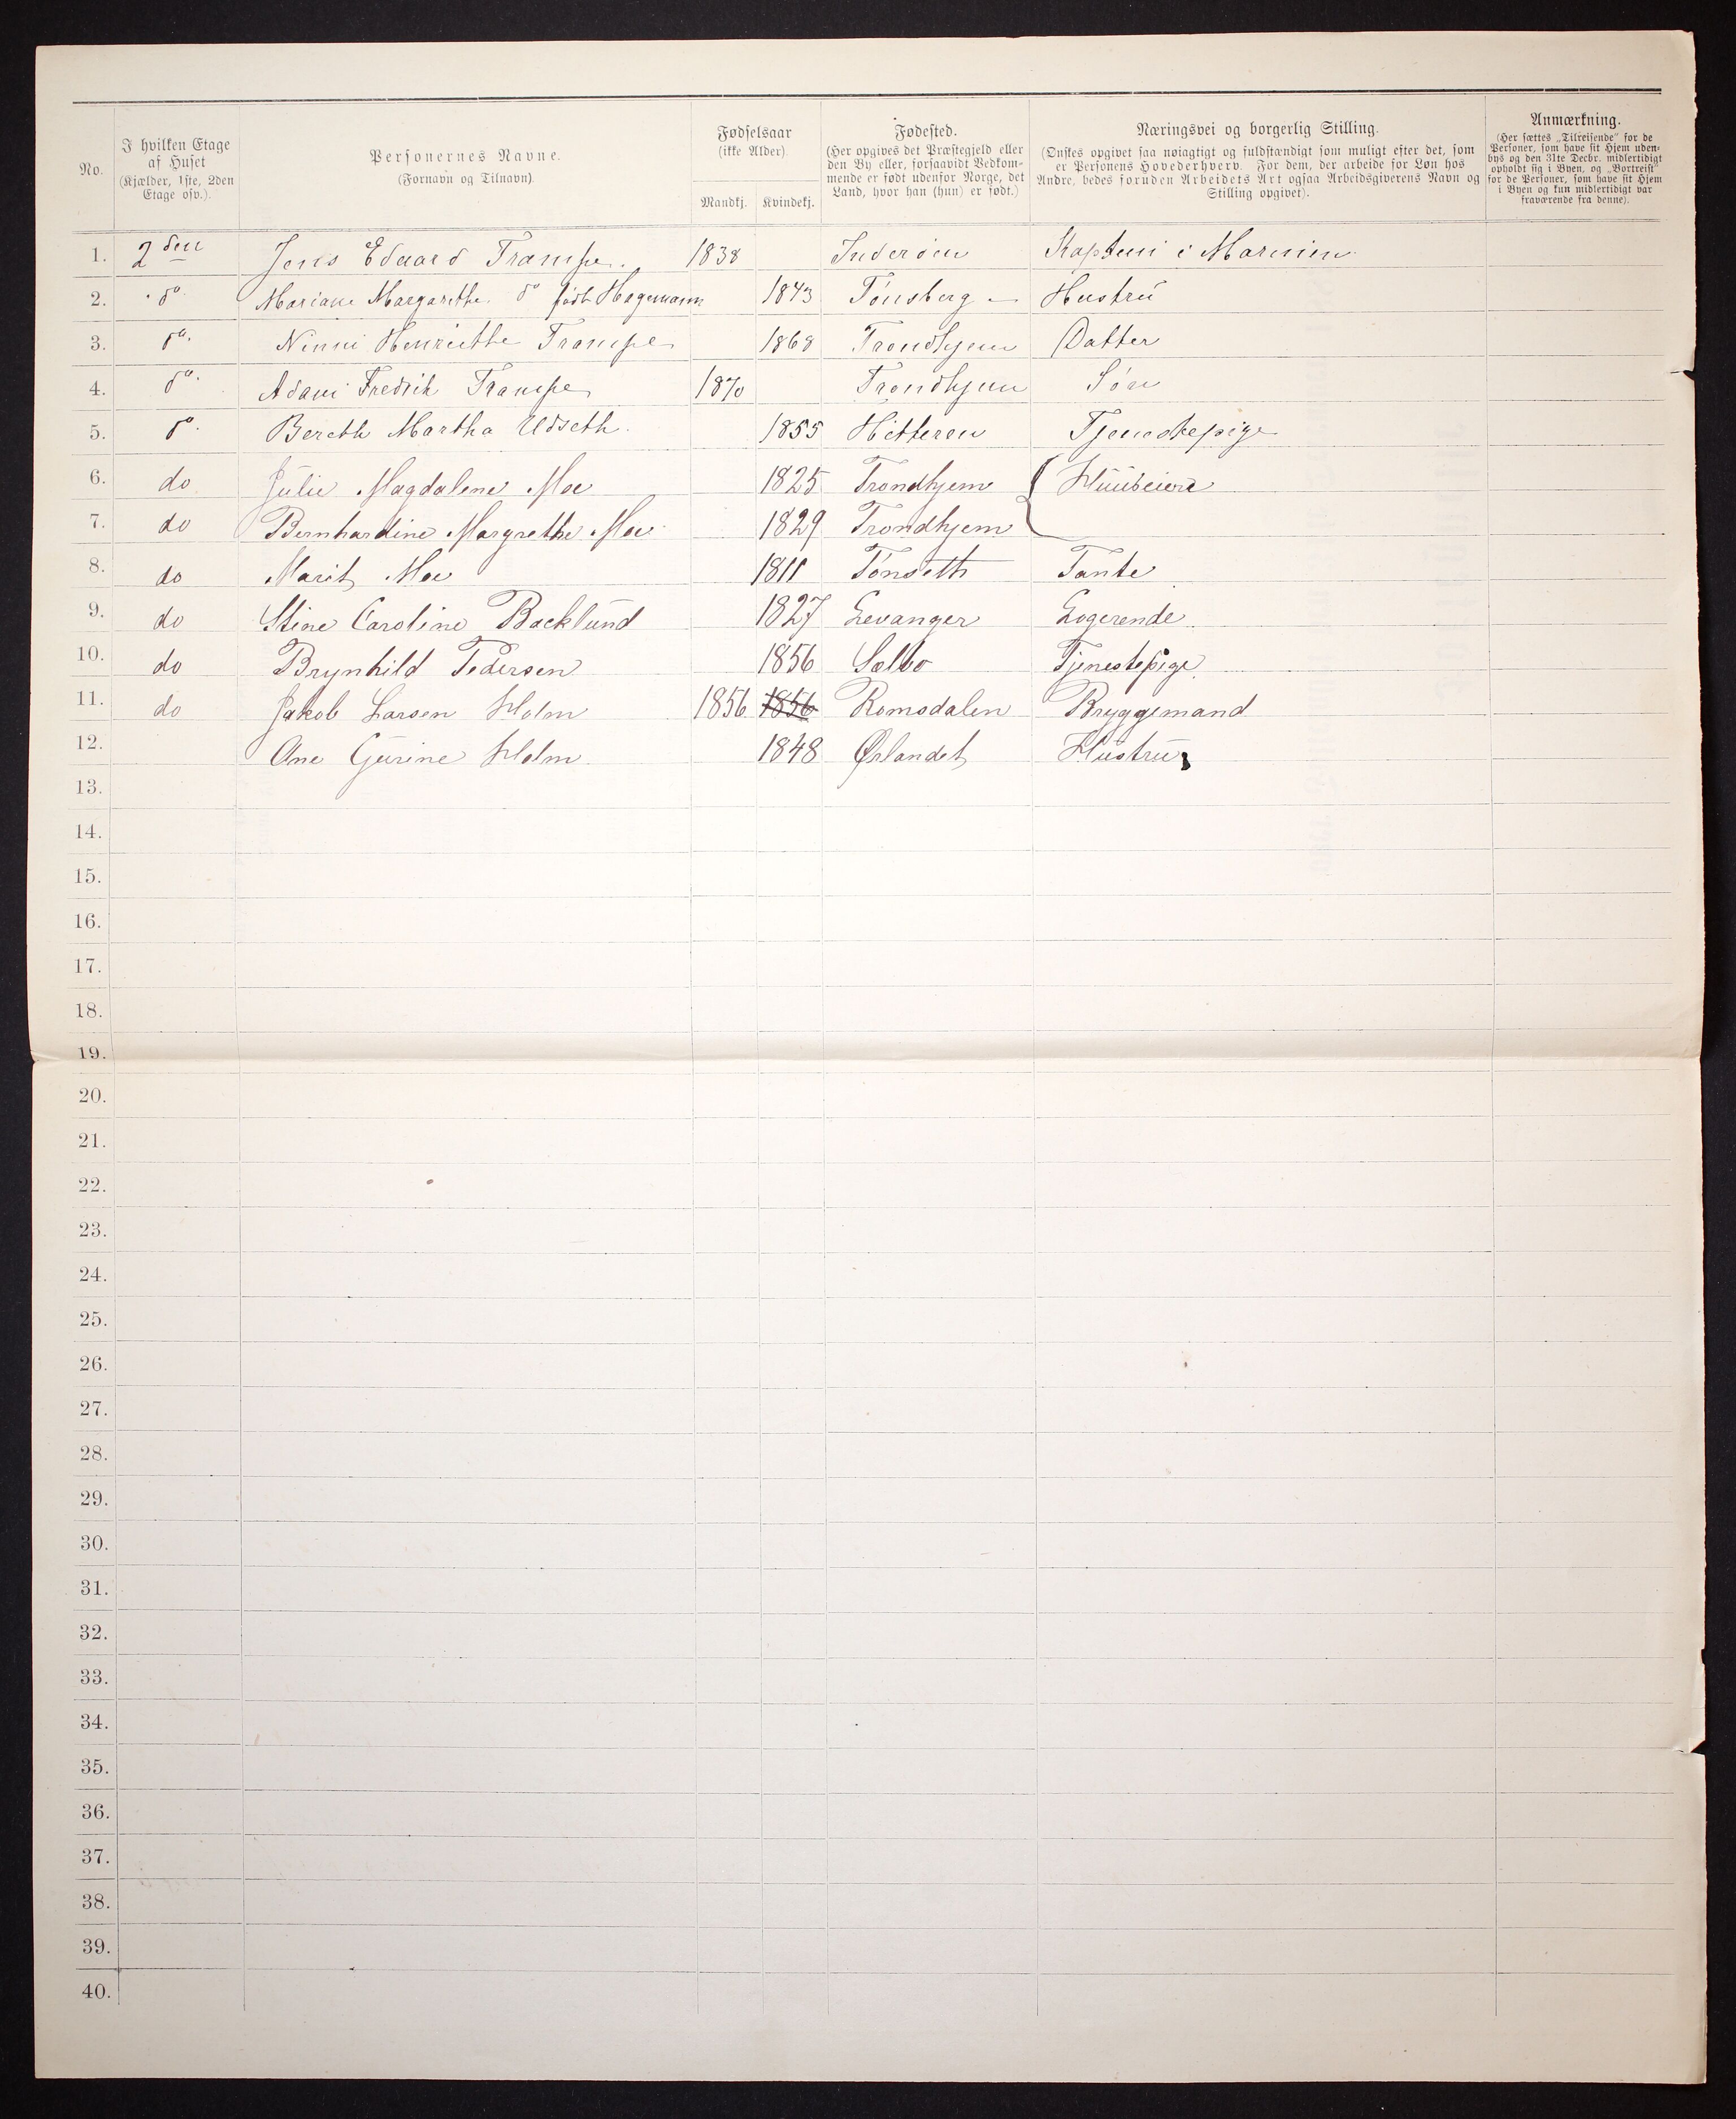 No.
I hvilken Etage
af Huset
(Kjælder, 1ste, 2den
Etage osv.).
Personernes Navne.
(Fornavn og Tilnavn).
Fødselsaar
(ikke Alder).
Mandkj. Kvindekj.
Fødested.
(Her opgives det Præstegjeld eller
den By eller, forsaavidt Vedkom-
mende er født udenfor Norge, det
Land, hvor han (hun) er født.)
Næringsvei og borgerlig Stilling.
(Ønskes opgivet saa nøiagtigt og fuldstændigt som muligt efter det, som
er Personens Hovederhverv. For dem, der arbeide for Løn hos
Andre, bedes foruden Arbeidets Art ogsaa Arbeidsgiverens Navn og
Stilling opgivet).
Anmærkning.
(Her sættes „Tilreisende" for de
Personer, som have sit Hjem uden-
bys og den 31te Decbr. midlertidigt
opholdt sig i Byen, og „Bortreist"
for de Personer, som have sit Hjem
i Byen og kun midlertidigt var
fraværende fra denne).
1. 2den Jens Edvard Trampe. 1838 Inderøen Kaptein i Marinen
2. do Mariane Margarethe do født Hagemann 1843 Tønsberg Hustru
3. do. Ninni Henriette Trampe 1868 Trondhjem Datter
4. do. Adam Fredrik Trampe 1870 Trondhjem Søn
5. do. Bereth Martha Udseth. 1855 Hitteren Tjenestepige
6. do Julie Magdalene Moe 1825 Trondhjem { Huuseiere
7. do Bernhardine Margrethe Moe 1829 Trondhjem
8. do Marit Moe 1811 Tønseth Tante
9. do Stine Caroline Backlund 1827 Levanger Logerende.
10. do Brynhild Pedersen 1856 Selbo Tjenestepige
11. do Jakob Larsen Holm 1856 1856 Romsdalen Bryggemand
12. Ane Gurine Holm. 1848 Ørlandet Hustru
13.
14.
15.
16.
17.
18.
19.
20.
21.
22.
23.
24.
25.
26.
27.
28.
29.
30.
31.
32.
33.
34.
35.
36.
37.
38.
39.
40.